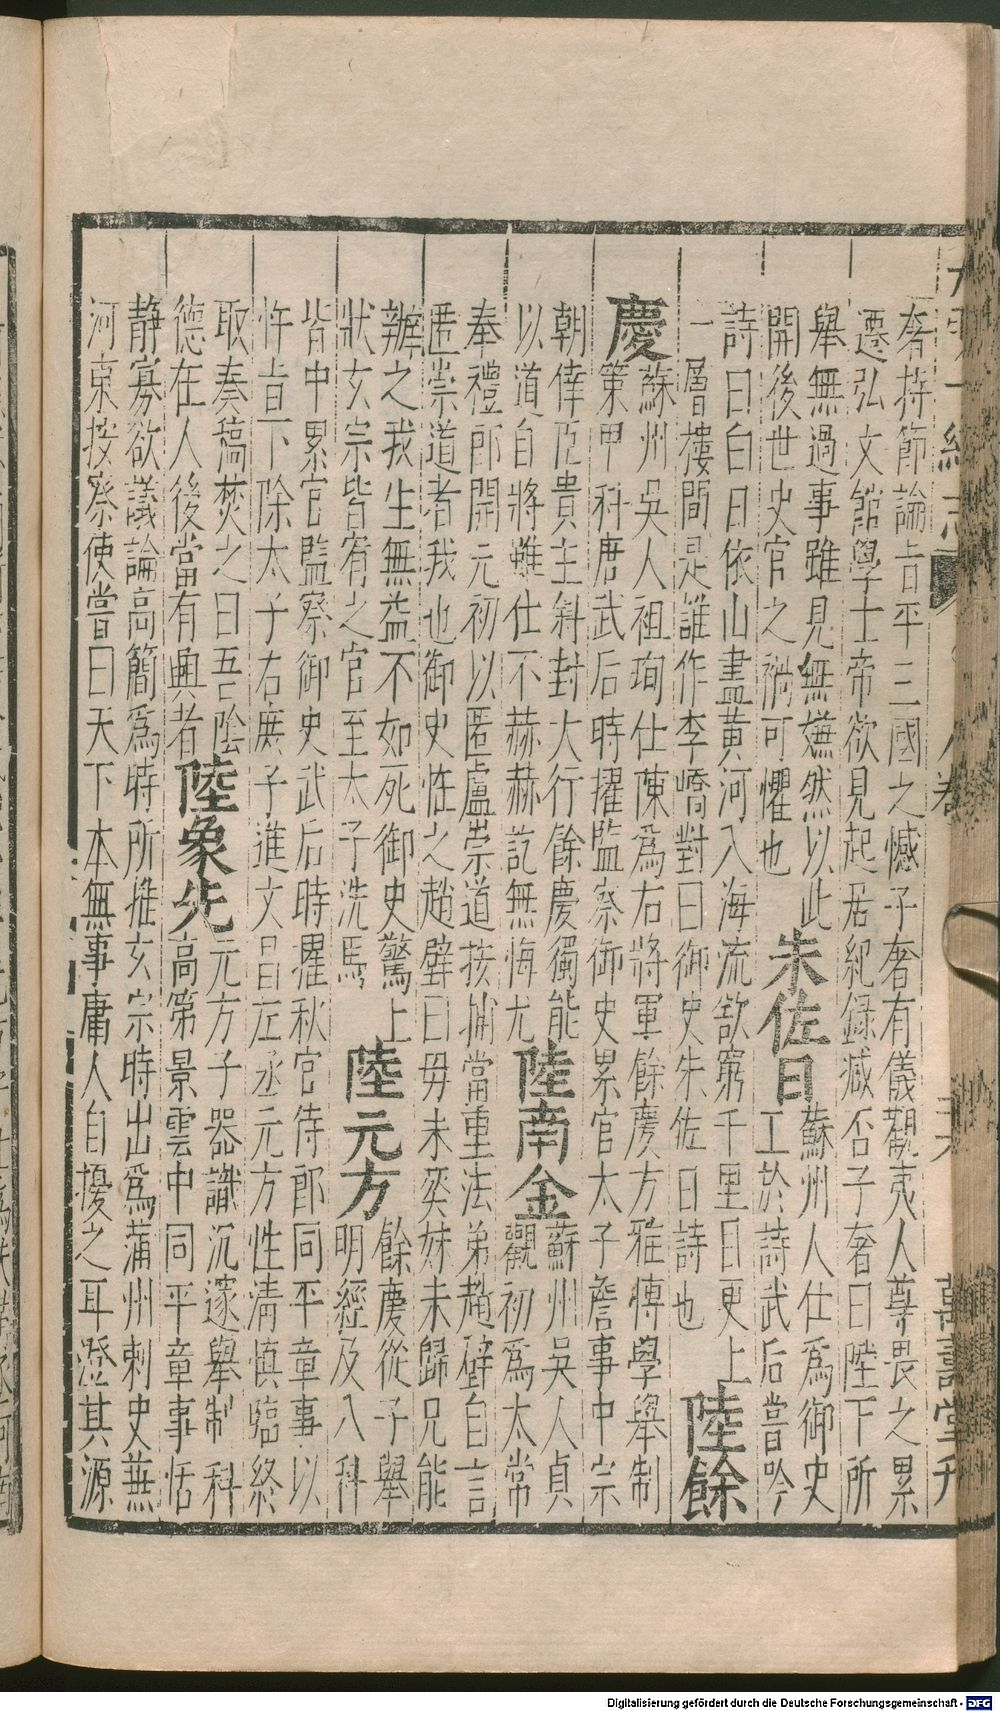 一統志
八卷
萬壽堂刊
奢持節論旨平三國之憾子奢有儀觀夷人尊畏之累
遷弘文館學士帝欲見起居紀錄臧否子奢曰陛下所
舉無過事雖見無嫌然以此
開後世史官之禍可懼也
朱佐日
蘇州人仕爲御史
工於詩武后嘗吟
詩曰白日依山盡黃河入海流欲窮千里目更上
一層樓問是誰作李嶠對曰御史朱佐日詩也
陸餘
慶
蘇州吳人祖珣仕陳爲右將軍餘慶方雅博學舉制
策甲科唐武后時擢監察御史累官太子詹事中宗
朝倖臣貴主斜封大行餘慶獨能
以道自將雖仕不赫赫訖無悔尤
陸南金
蘇州吳人貞
觀初爲太常
奉禮郎開元初以匿盧崇道按捕當重法弟趙璧自言
匿崇道者我也御史怪之趙璧曰毋未葬妹未歸兄能
辦之我生無益不如死御史驚上
狀玄宗皆宥之官至太子洗馬
陸元方
餘慶從子舉
明經及八科
皆中累官監察御史武后時擢秋官侍郎同平章事以
忤旨下除太子右庶子進文昌左丞元方性清慎臨終
取奏稿焚之曰吾陰
德在人後當有興者
陸象先
元方子器識沉邃舉制科
高第景雲中同平章事恬
靜寡欲議論高簡爲時所推玄宗時出爲蒲州刺史兼
河東按察使嘗曰天下本無事庸人自擾之耳澄其源
Digitalisierung gefördert durch die Deutsche Forschungsgemeinschaft - DFG